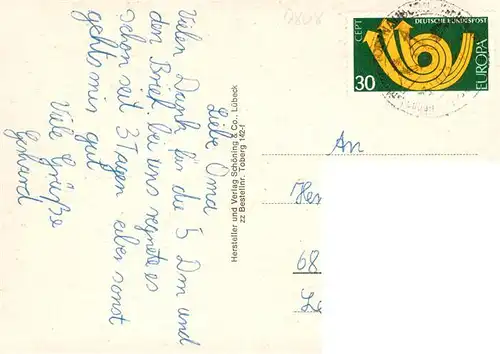 Liebe Oma
Vielen Dank für die 5 Dm und
den Brief. bei uns regnete es
schon seit 3 Tagen aber sonst
geht's mir gut.
Viele Grüße
Gerhard
Hersteller und Verlag Schöning & Co., Lübeck
zz Bestellnr. Toberg 142-f
CEPT
DEUTSCHE BUNDESPOST
30
EUROPA
An
68